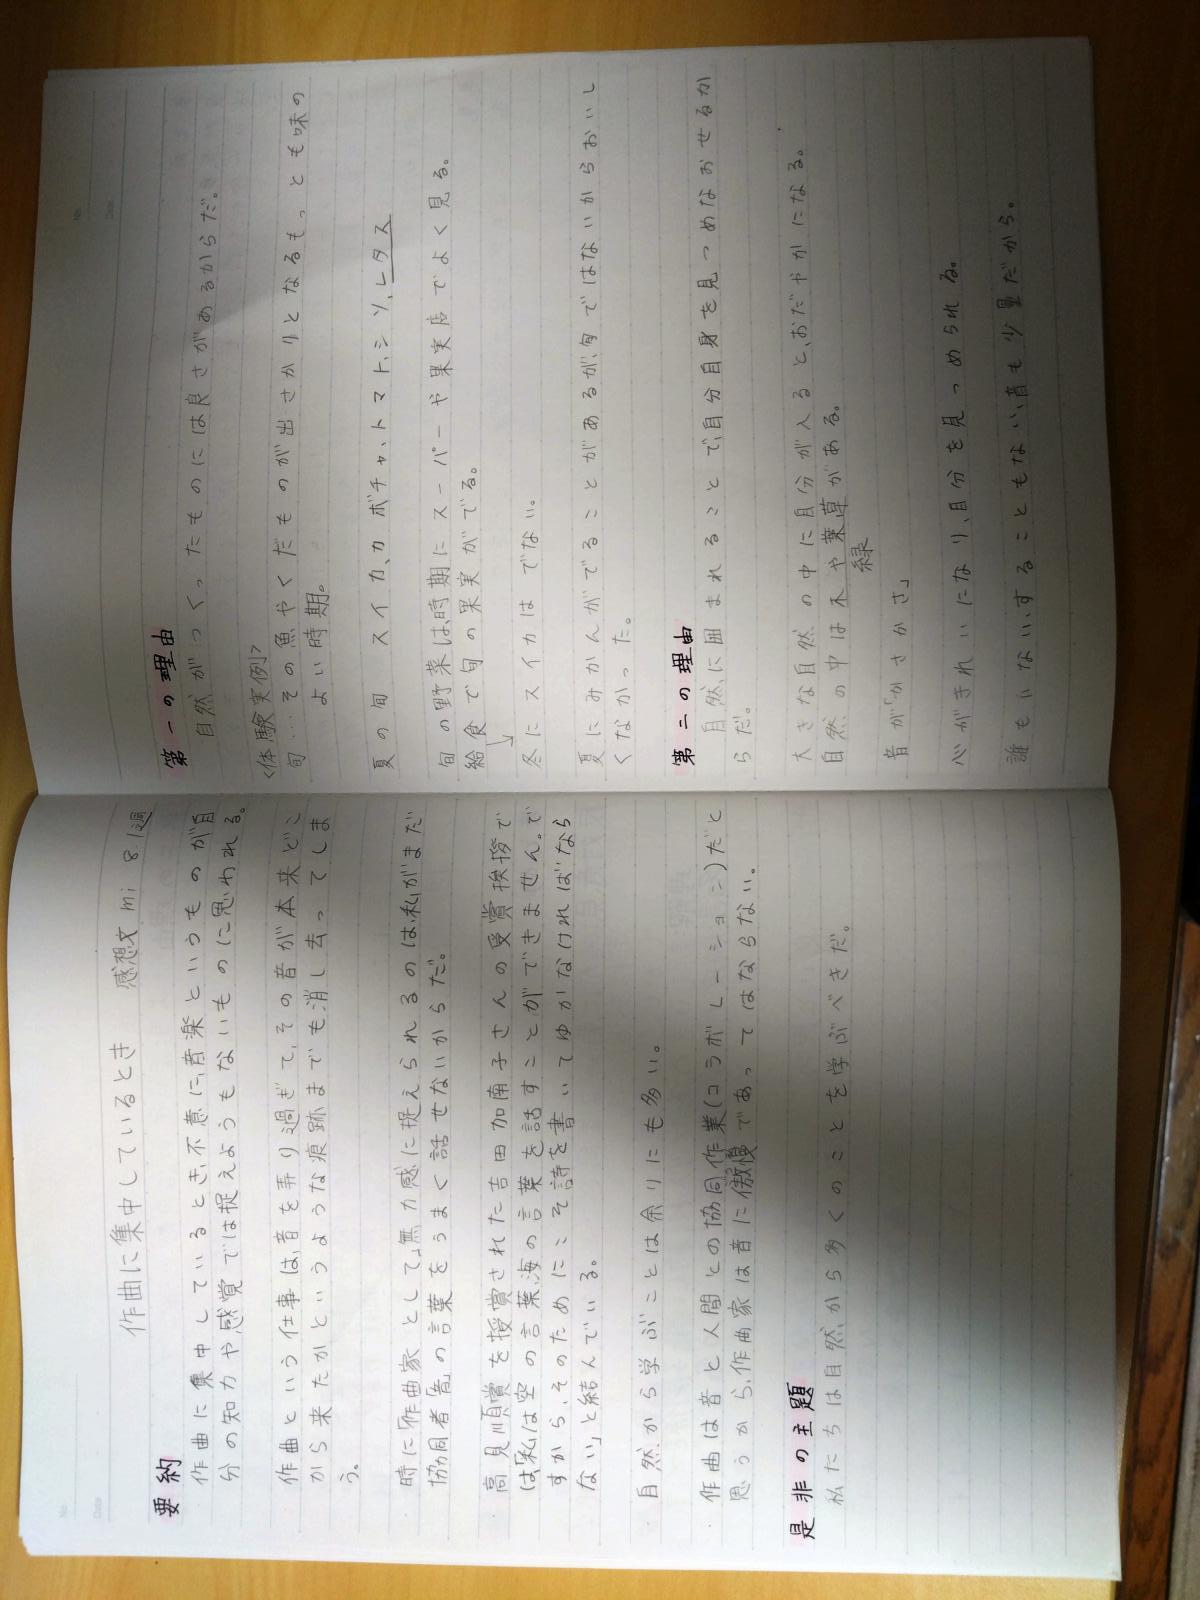 作曲に集中しているとき 感想文 mi 8 1週
要約
作曲に集中しているとき、不意に、音楽というものが自
分の知力や感覚では捉えようもないものに思われる。
作曲という仕事は、音を弄り過ぎて、その音が本来どこ
から来たかというような痕跡までも消し去ってしま
う。
時に「作曲家として」無力感に捉えられるのは、私がまだ
協同者「音」の言葉をうまく話せないからだ。
高見順賞を授賞された吉田加南子さんの受賞挨拶で
は「私は空の言葉、海の言葉を話すことができません。で
すから、そのためにこそ詩を書いてゆかなければなら
ない」と結んでいる。
自然から学ぶことは余りにも多い。
作曲は音と人間との協同作業(コラボレーション)だと
思うから、作曲家は音に傲慢であってはならない。
是非の主題
私たちは自然から多くのことを学ぶべきだ。
No.
Date
第一の理由
自然がつくったものには良さがあるからだ。
<体験実例>
旬…その魚やくだものが出さかりとなるもっとも味の
よい時期。
夏の旬 スイカ、カボチャ、トマト、シソ、レタス
旬の野菜は、時期にスーパーや果実店でよく見る。
給食で旬の果実がでる。
冬にスイカはでない。
夏にみかんがでることがあるが、旬ではないからおいし
くなかった。
第二の理由
自然に囲まれることで、自分自身を見つめなおせるか
らだ。
大きな自然の中に自分が入ると、おだやかになる。
自然の中は木や葉草がある。
緑
音が「かさかさ」
心がきれいになり、自分を見つめられる。
誰もいない、することもない、音も少量だから。